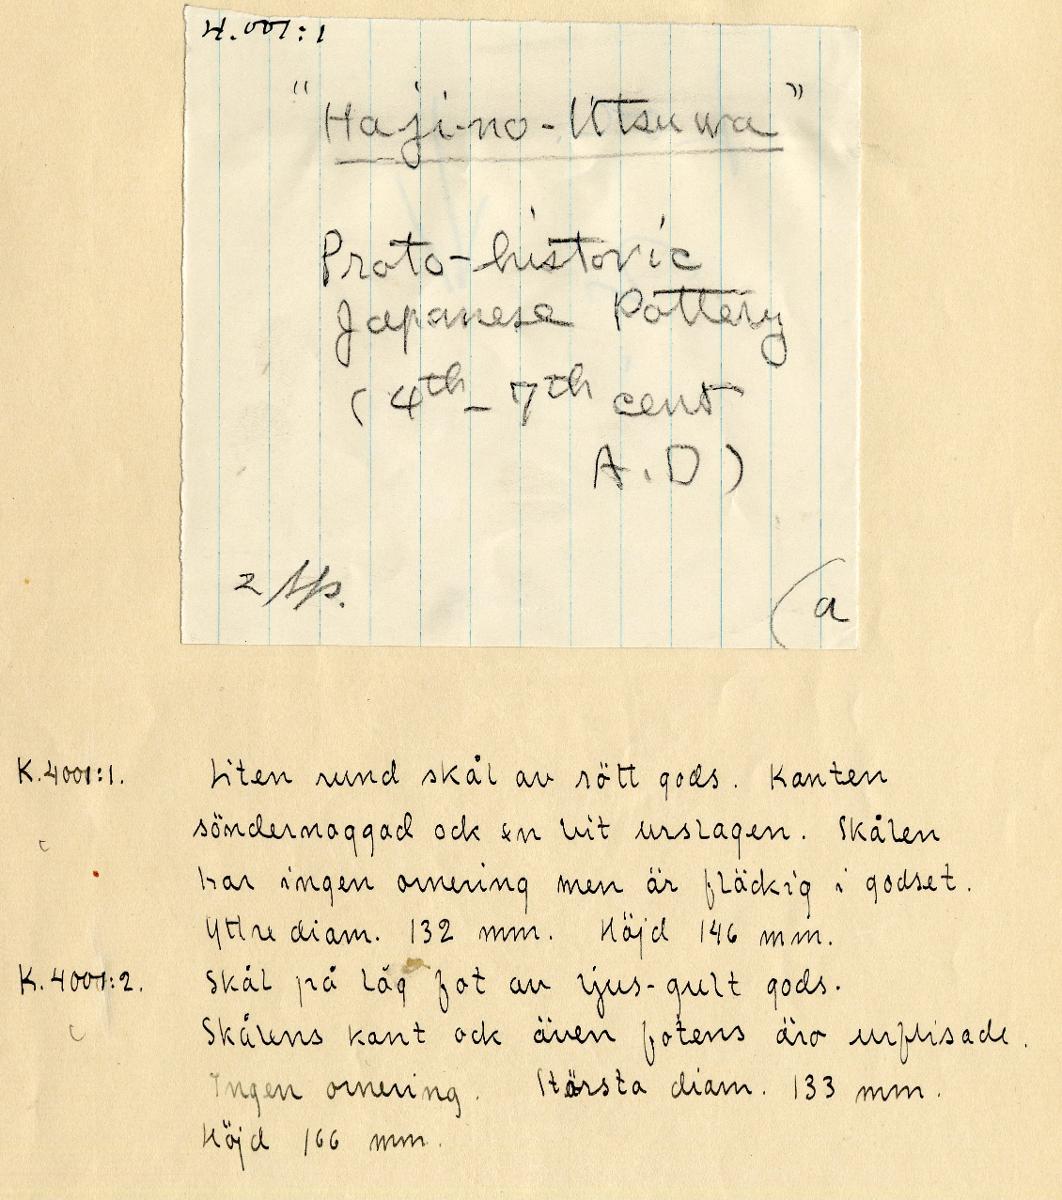 4.001:1
"Haji-no-Utsuwa"
Proto-historic
Japanese Pottery
(4th - 7th cent
A.D)
2
(a
K.4001:1. Liten rund skål av rött gods. Kanten
söndernaggad ock en bit urslagen. Skålen
har ingen ornering men är fläckig i godset.
Yttre diam. 132 mm. Höjd 146 mm.
K.4001:2. Skål på låg fot av ljus-gult gods.
Skålens kant ock även fotens äro urflisade.
Ingen ornering. Största diam. 133 mm.
Höjd 166 mm.